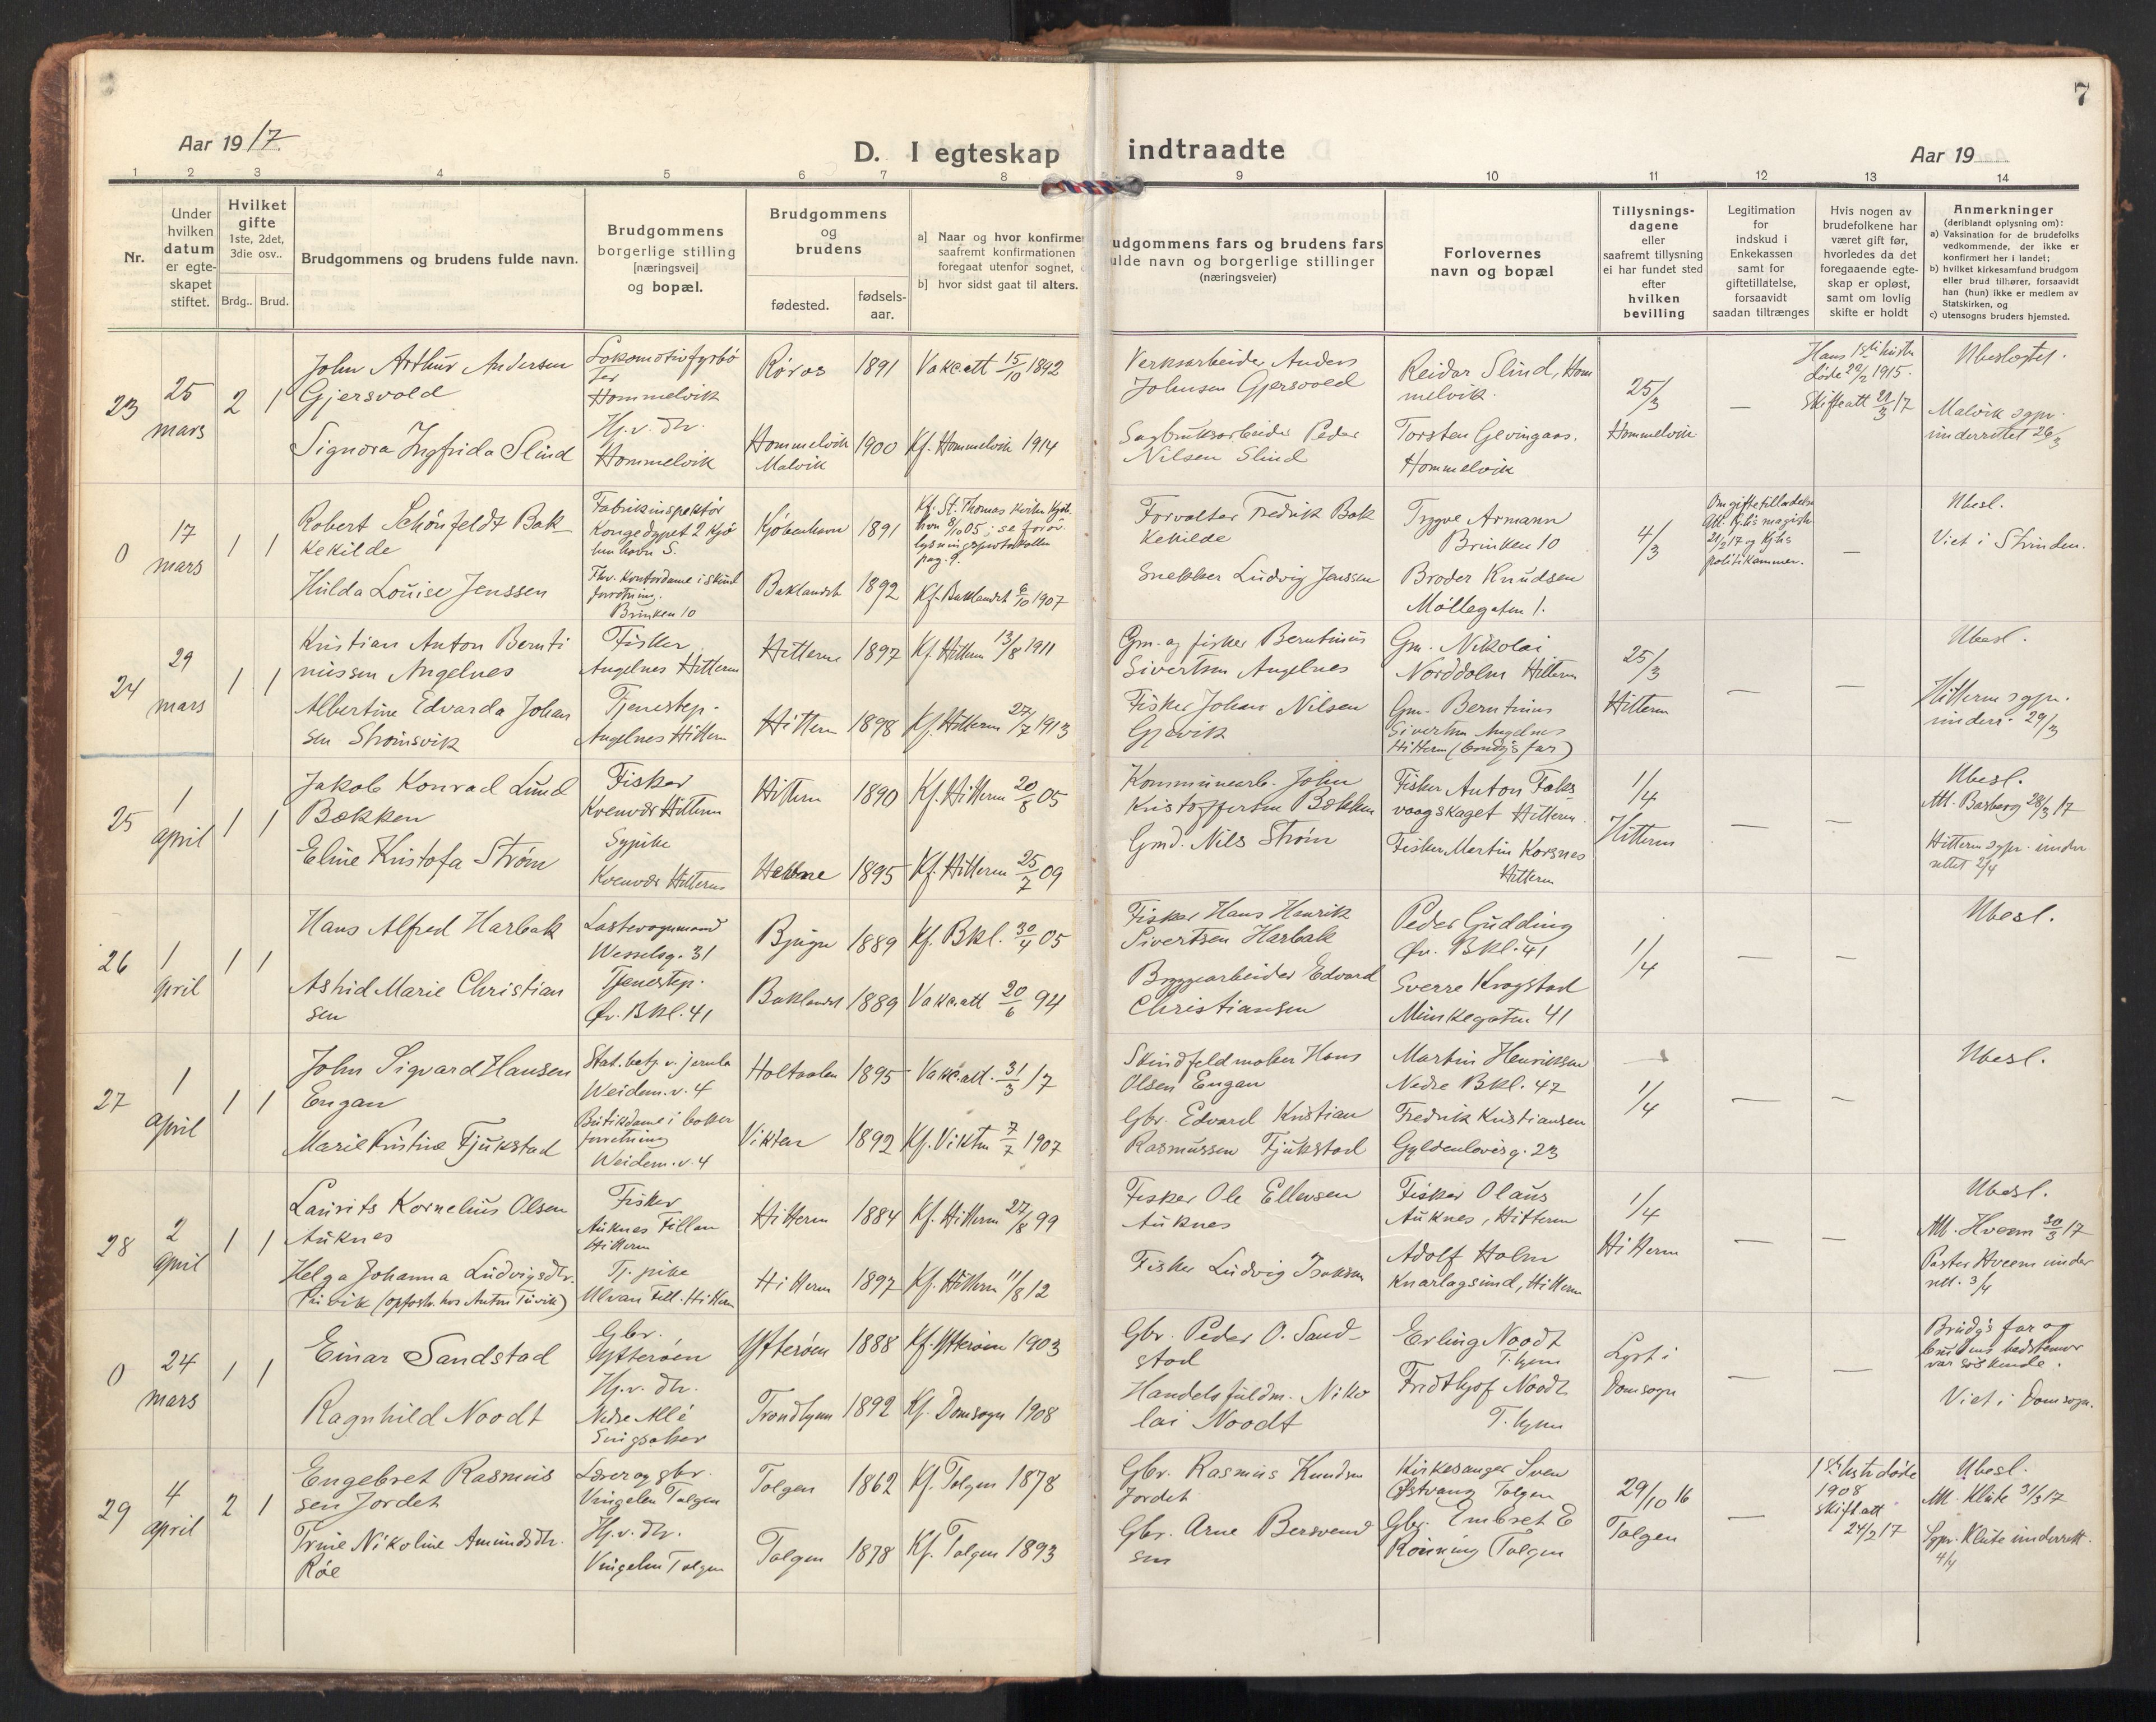 7
Aar 1917.
D. I egteskap indtraadte
Aar 19
1 2 3 4 5 6 7 8 9 10 11 12 13 14
Nr.
Under
hvilken
datum
er egte-
skapet
stiftet.
Hvilket
gifte
1ste, 2det,
3die osv..
Brdg.. Brud.
Brudgommens og brudens fulde navn.
Brudgommens
borgerlige stilling
[næringsvei]
og bopæl.
Brudgommens
og
brudens
fødested.
fødsels-
aar.
a] Naar og hvor konfirme
saafremt konfirmationen
foregaat utenfor sognet,
b] hvor sidst gaat til alters.
udgommens fars og brudens fars
ulde navn og borgerlige stillinger
(næringsveier)
Forlovernes
navn og bopæl
Tillysnings-
dagene
eller
saafremt tillysning
ei har fundet sted
efter
hvilken
bevilling
Legitimation
for
indskud i
Enkekassen
samt for
giftetillatelse,
forsaavidt
saadan tiltrænges
Hvis nogen av
brudefolkene har
været gift før,
hvorledes da det
foregaaende egte-
skap er opløst,
samt om lovlig
skifte er holdt
Anmerkninger
(deriblandt oplysning om):
a) Vaksination for de brudefolks
vedkommende, der ikke er
konfirmert her i landet;
b) hvilket kirkesamfund brudgom
eller brud tilhører, forsaavidt
han (hun) ikke er medlem av
Statskirken, og
c) utensogns bruders hjemsted.
23
25
mars
2 1
John Arthur Andersen
Gjersvold
Signora Ingfrida Slind
Lokomotivfyrbø
ter
Hommelvik
Hj.v. dtr.
Hommelvik
Røros 1891 Vakc att 15/10 1892
Hommelvik
Malvik
1900 Kf. Hommelvik 1914
Verksarbeider Anders
Johnsen Gjersvold
Sagbruksarbeider Peder
Nilsen Slind
Reidar Slind, Hom
melvik.
Torsten Gevingaas.
Hommelvik
25/3
Hommelvik
—
Hans 1ste hustru
døde 20/2 1915.
Skifteatt 21/3 17
Ubeslegtet.
Malvik sgpr.
underrettet 26/3
0
17
mars
1 1
Robert Schönfeldt Bak
Kekilde
Hilda Louise Jenssen
Fabrikinspektør
Kongedypet 2 Kjø
benhavn S.
Fhv. Kontordame i skind
forretning.
Brinken 10
Kjøbenhavn 1891
Kf. St. Thomas Kirken Kjøb.
havn 8/10 05; se forøv.
lysningsprotokollen
pag. 9.
Baklandet 1892 Kf. Baklandet 6/10 1907
Forvalter Fredrik Bak
Kekilde
Snekker Ludvig Jenssen
Trygve Armann
Brinken 10
Broder Knudsen
Møllegaten 1.
4/3
Om giftetilladelse
Att. Kjbh's magistr.
21/2 17 og Kjbh's
politikammer.
—
Ubesl.
Viet i Strinden.
24
29
mars
1 1
Kristian Anton Bernti
nussen Angelnes
Albertine Edvarda Johan
sen Strømsvik
Fisker
Angelnes Hitteren
Tjenestep.
Angelnes Hitteren
Hitteren 1897 Kf. Hitteren 13/8 1911
Hitteren 1898 Kf. Hitteren 27/7 1913
Gm. og fisker Berntinus
Sivertsen Angelnes
Fisker Johan Nilsen
Gjøvik
Gm. Nikolai
Norddolm Hitteren
Gm. Berntinus
Sivertsen Angelnes
Hitteren (brudg's far)
25/3
Hitteren
— —
Ubesl.
Hitteren sgpr.
underr. 29/3
25
1
april
1 1
Jakob Konrad Lund
Bækken
Eline Kristofa Strøm
Fisker
Kvenvær Hitteren
Sypike
Kvenvær Hitteren
Hitteren 1890 Kf. Hitteren 20/8 05
Hebne 1895 Kf. Hitteren 25/7 09
Kommunearb. John
Kristoffersen Bækken
Gmd. Nils Strøm
Fisker Anton Faks
vaagskaget Hitteren
Fisker Martin Korsnes
Hitteren
1/4
Hitteren
— —
Ubesl.
Att. Barberg 28/3 17
Hitteren sgpr. under
rettet 2/4
26
1
april
1 1
Hans Alfred Harbak
Astrid Marie Christian
sen
Lastevognmand
Wesselsg. 31
Tjenestep.
Øv. Bkl. 41
Bjugn 1889 Kf. Bkl. 30/4 05
Baklandet 1889 Vakc.att 20/6 94
Fisker Hans Henrik
Sivertsen Harbak
Bryggearbeider Edvard
Christiansen
Peder Gudding
Øv. Bkl. 41
Sverre Krogstad
Munkegaten 41
1/4
— —
Ubesl.
27
1
april
1 1
John Sigvard Hansen
Engan
Marie Kristine Fjukstad
Stat. betj. v. jernba
Weidem.v. 4
Butikdame i baker
forretning
Weidem.v. 4
Holtaalen 1895 Vakc.att. 31/3 17
Vikten 1892 Kf. Vikten 7/7 1907
Skindfeldmaker Hans
Olsen Engan
Gbr. Edvard Kristian
Rasmussen Fjukstad
Martin Henriksen
Nedre Bkl. 47
Fredrik Kristiansen
Gyldenløvesg. 23
1/4
— —
Ubesl.
28
2
april
1 1
Laurits Kornelius Olsen
Auknes
Helga Johanna Ludvigsdtr.
(opfostr. hos Anton)
Fisker
Auknes Fillan
Hitteren
Tj. pike
Ulvan Fill. Hitteren
Hitteren 1884 Kf. Hitteren 27/8 99
Hitteren 1897 Kf. Hitteren 11/8 12
Fisker Ole Ellevsen
Auknes
Fisker Ludvig Isaksen
Fisker Olaus
Auknes, Hitteren
Adolf Holm
Knarlagsund, Hitteren
1/4
Hitteren
— —
Ubesl.
Att. Hveem 30/3 17
Pastor Hveem under
ret. 3/4
0
24
mars
1 1
Einar Sandstad
Ragnhild Noodt
Gbr.
Ytterøen
Hj.v. dtr.
Nedre Allé
Singsaker
Ytterøen 1888 Kf. Ytterøen 1903
Trondhjem 1892 Kf. Domsogn 1908
Gbr. Peder O. Sand-
stad
Handelsfuldm. Niko
lai Noodt
Erling Noodt
T.hjem
Fridthjof Noodt
T.hjem
Lyst i
Domsogn
— —
Brudg's far og
brudens bedstemor
var søskende.
Viet i Domsogn.
29
4
april
2 1
Engebret Rasmus
sen Jordet
Trine Nikoline Amundsdtr.
Røe
Lærer og gbr.
Vingelen Tolgen
Hj.v. dtr.
Vingelen Tolgen
Tolgen 1862 Kf. Tolgen 1878
Tolgen 1878 Kf. Tolgen 1893
Gbr. Rasmus Knudsen
Jordet
Gbr. Arne Bersvend
sen
Kirkesanger Sven
Østvang Tolgen
Gbr. Embret E
Rønning Tolgen
29/10 16
Tolgen
—
1ste hustr døde
1908
skifteatt
24/2 17
Ubesl.
Att. Klüte 31/3 17
Sgpr. Klüte underrett.
4/4